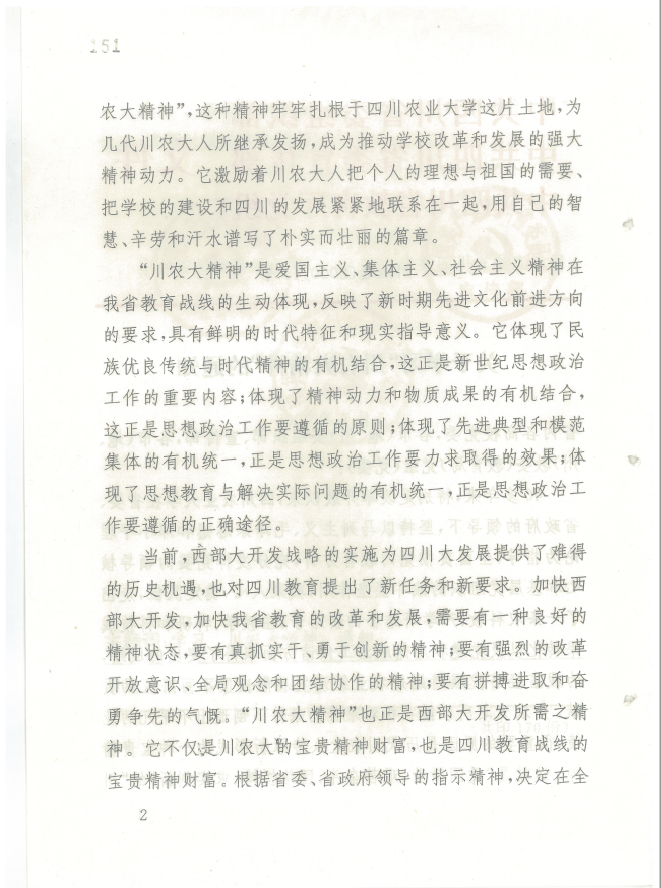 151
农大精神”,这种精神牢牢扎根于四川农业大学这片土地,为
几代川农大人所继承发扬,成为推动学校改革和发展的强大
精神动力。它激励着川农大人把个人的理想与祖国的需要、
把学校的建设和四川的发展紧紧地联系在一起,用自己的智
慧、辛劳和汗水谱写了朴实而壮丽的篇章。
“川农大精神”是爱国主义、集体主义、社会主义精神在
我省教育战线的生动体现,反映了新时期先进文化前进方向
的要求,具有鲜明的时代特征和现实指导意义。它体现了民
族优良传统与时代精神的有机结合,这正是新世纪思想政治
工作的重要内容;体现了精神动力和物质成果的有机结合,
这正是思想政治工作要遵循的原则;体现了先进典型和模范
集体的有机统一,正是思想政治工作要力求取得的效果;体
现了思想教育与解决实际问题的有机统一,正是思想政治工
作要遵循的正确途径。
当前,西部大开发战略的实施为四川大发展提供了难得
的历史机遇,也对四川教育提出了新任务和新要求。加快西
部大开发,加快我省教育的改革和发展,需要有一种良好的
精神状态,要有真抓实干、勇于创新的精神;要有强烈的改革
开放意识、全局观念和团结协作的精神;要有拼搏进取和奋
勇争先的气慨。“川农大精神”也正是西部大开发所需之精
神。它不仅是川农大的宝贵精神财富,也是四川教育战线的
宝贵精神财富。根据省委、省政府领导的指示精神,决定在全
2